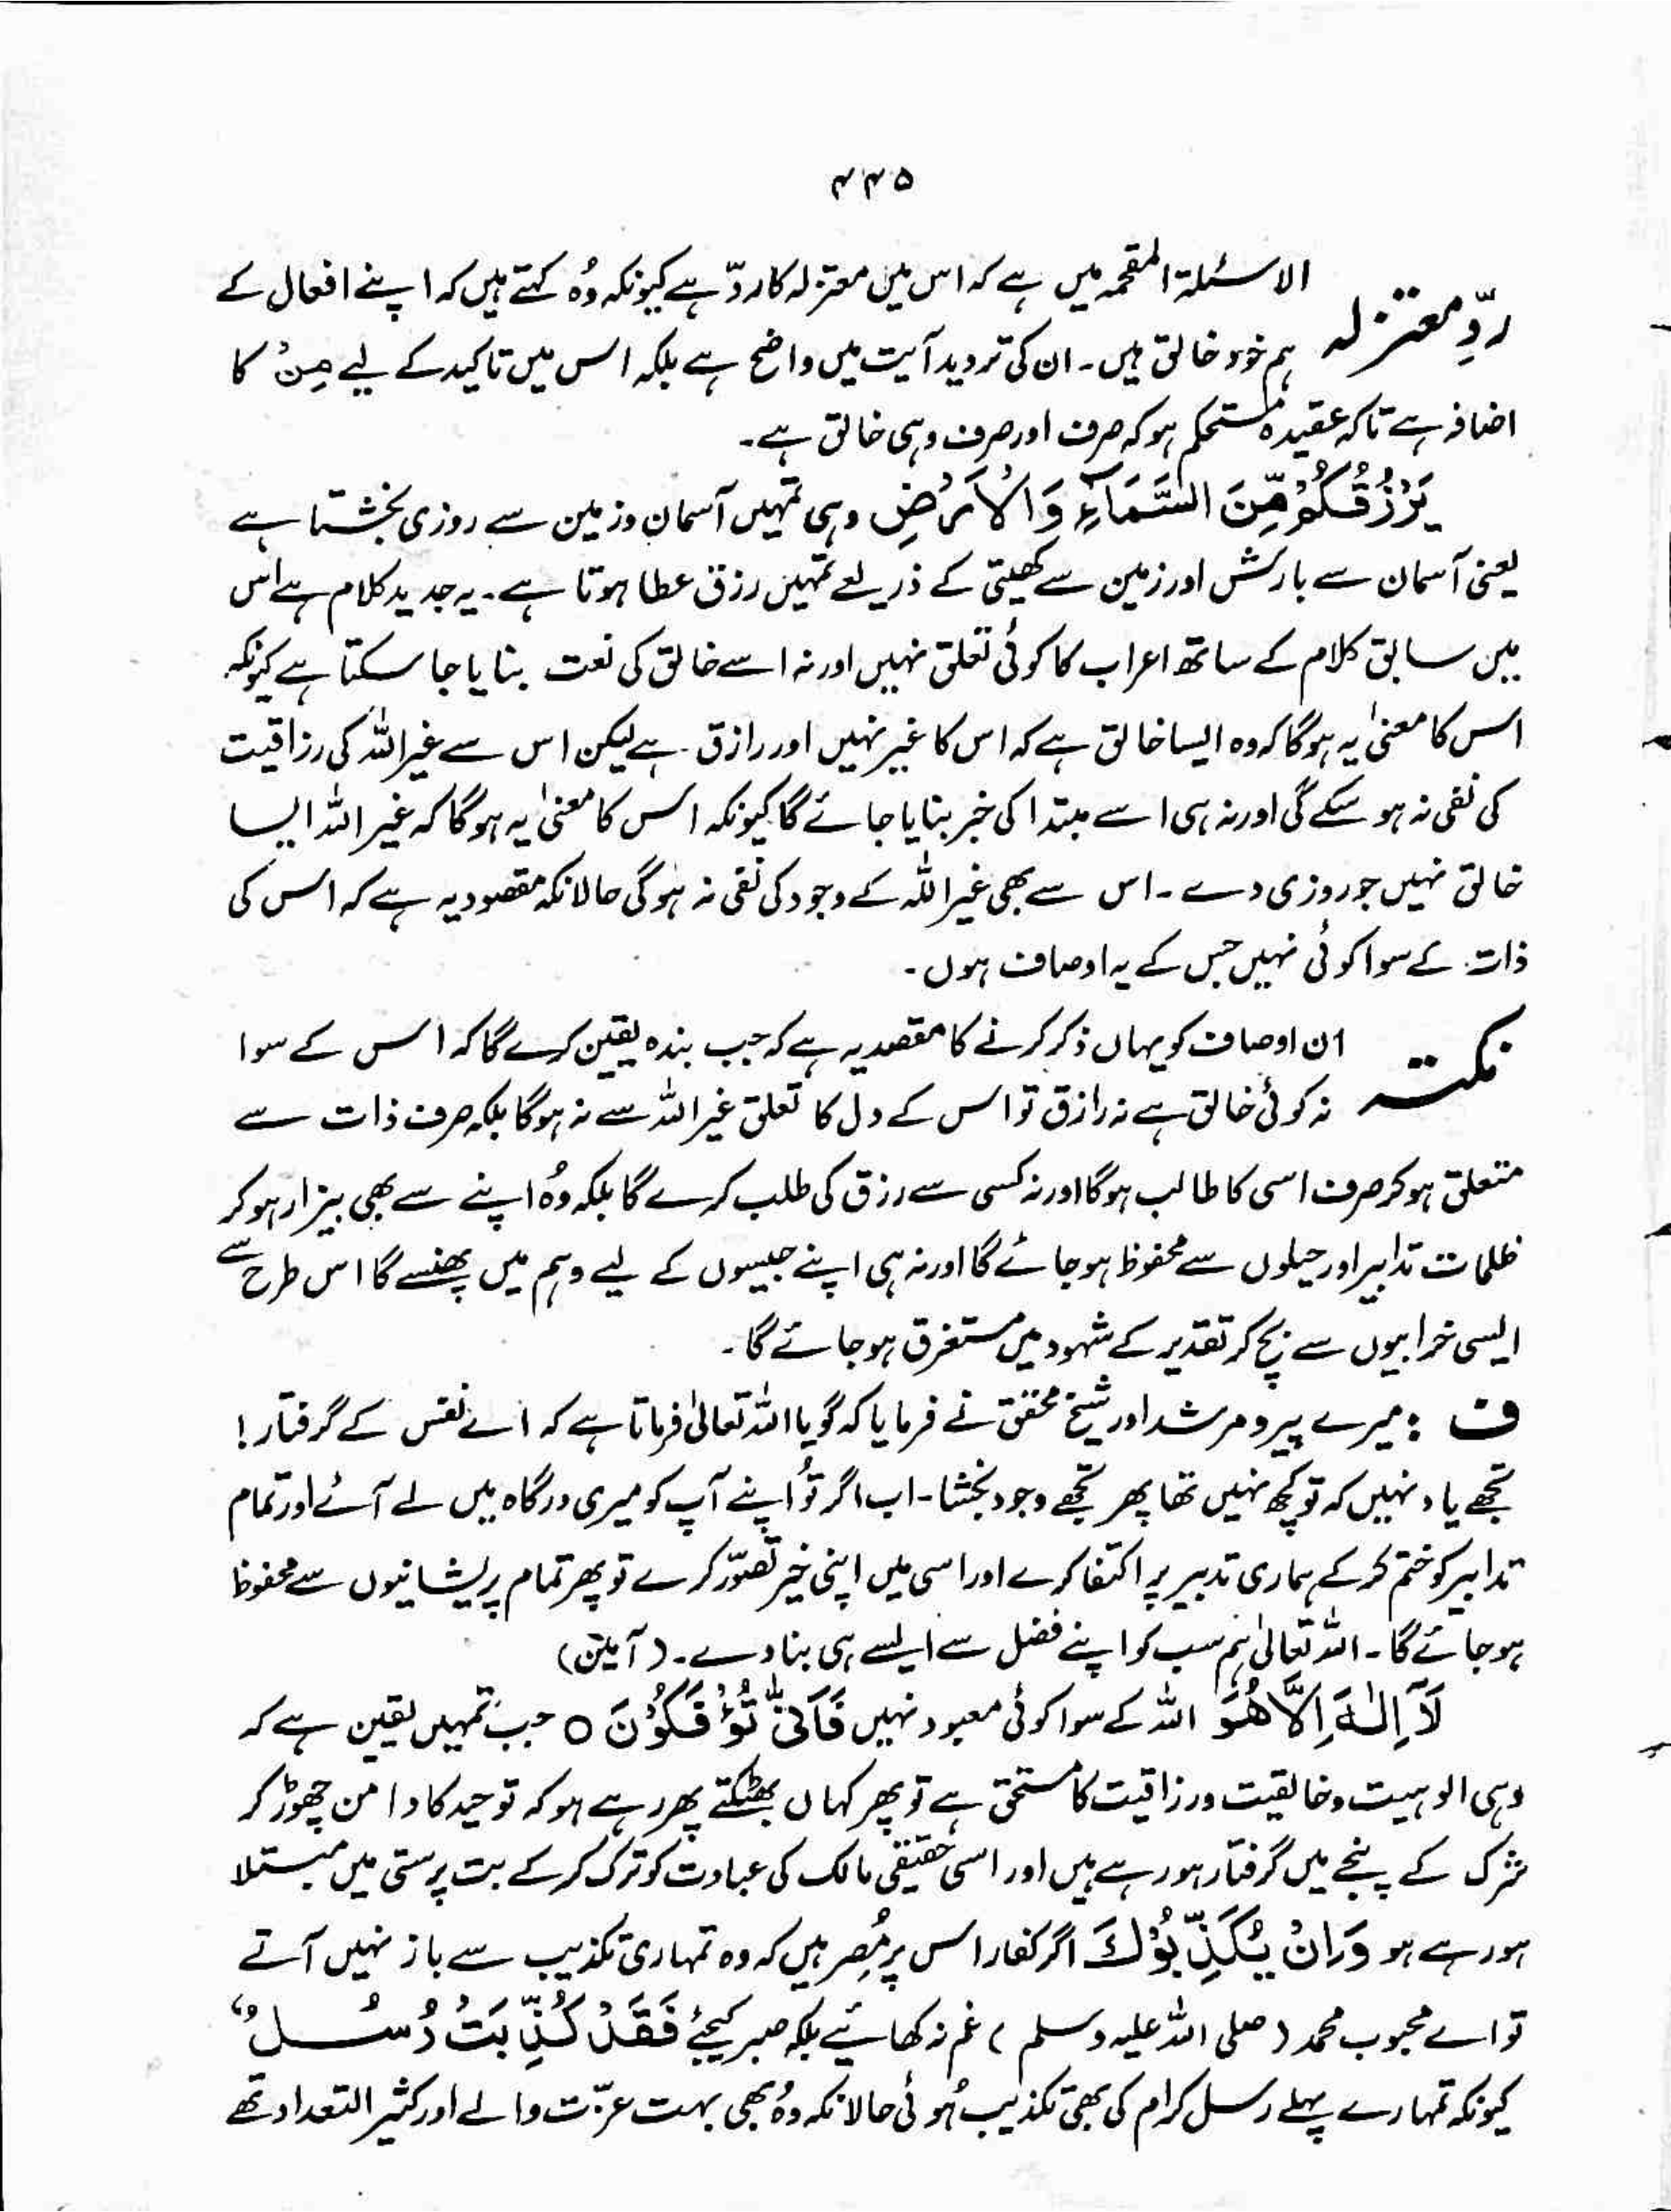 ۴۴۵
ردِّ معتزلہ الاسئلۃ المقحمہ میں ہے کہ اس میں معتزلہ کا ردّ ہے کیونکہ وُہ کہتے ہیں کہ اپنے افعال کے
ہم خود خالق ہیں۔ ان کی تردید آیت میں واضح ہے بلکہ اس میں تاکید کے لیے مِنْ کا
اضافہ ہے تاکہ عقیدہ مستحکم ہو کہ صرف اور صرف وہی خالق ہے۔
يَرْزُقُكُمْ مِّنَ السَّمَآءِ وَالْاَرْضِ وہی تمہیں آسمان وزمین سے روزی بخشتا ہے
یعنی آسمان سے بارش اور زمین سے کھیتی کے ذریعے تمہیں رزق عطا ہوتا ہے۔ یہ جدید کلام ہے اس
میں سابق کلام کے ساتھ اعراب کا کوئی تعلق نہیں اور نہ اسے خالق کی نعت بنایا جا سکتا ہے کیونکہ
اس کا معنیٰ یہ ہوگا کہ وہ ایسا خالق ہے کہ اس کا غیر نہیں اور رازق ہے لیکن اس سے غیراللہ کی رزاقیت
کی نفی نہ ہو سکے گی اور نہ ہی اسے مبتدا کی خبر بنایا جائے گا کیونکہ اس کا معنیٰ یہ ہوگا کہ غیر اللہ ایسا
خالق نہیں جو روزی دے۔ اس سے بھی غیراللہ کے وجود کی نفی نہ ہوگی حالانکہ مقصود یہ ہے کہ اس کی
ذات کے سوا کوئی نہیں جس کے یہ اوصاف ہوں۔
نکتہ ان اوصاف کو یہاں ذکر کرنے کا مقصد یہ ہے کہ جب بندہ یقین کرے گا کہ اس کے سوا
نہ کوئی خالق ہے نہ رازق تو اس کے دل کا تعلق غیراللہ سے نہ ہوگا بلکہ صرف ذات سے
متعلق ہو کر صرف اسی کا طالب ہوگا اور نہ کسی سے رزق کی طلب کرے گا بلکہ وُہ اپنے سے بھی بیزار ہو کر
ظلمات تدابیر اور حیلوں سے محفوظ ہو جائے گا اور نہ ہی اپنے جیسوں کے لیے وہم میں پھنسے گا اس طرح سے
ایسی خرابیوں سے بچ کر تقدیر کے شہود میں مستغرق ہو جائے گا۔
ف : میرے پیر و مرشد اور شیخ محقق نے فرمایا کہ گویا اللہ تعالیٰ فرماتا ہے کہ اے نفس کے گرفتار!
تجھے یاد نہیں کہ تو کچھ نہیں تھا پھر تجھے وجود بخشا۔ اب اگر تُو اپنے آپ کو میری درگاہ میں لے آئے اور تمام
تدابیر کو ختم کر کے ہماری تدبیر پر اکتفا کرے اور اسی میں اپنی خیر تصوّر کرے تو پھر تمام پریشانیوں سے محفوظ
ہو جائے گا۔ اللہ تعالیٰ ہم سب کو اپنے فضل سے ایسے ہی بنا دے۔ (آمین)
لَآ اِلٰهَ اِلَّا هُوَ اللہ کے سوا کوئی معبود نہیں فَاَنّٰى تُؤْفَكُوْنَ ○ جب تمہیں یقین ہے کہ
وہی الوہیت و خالقیت و رزاقیت کا مستحق ہے تو پھر کہاں بھٹکتے پھر رہے ہو کہ توحید کا دامن چھوڑ کر
شرک کے پنجے میں گرفتار ہو رہے ہیں اور اسی حقیقی مالک کی عبادت کو ترک کر کے بت پرستی میں مبتلا
ہو رہے ہو وَاِنْ يُّكَذِّبُوْكَ اگر کفار اس پر مُصر ہیں کہ وہ تمہاری تکذیب سے باز نہیں آتے
تو اے محبوب محمد (صلی اللہ علیہ وسلم) غم نہ کھائیے بلکہ صبر کیجئے فَقَدْ كُذِّبَتْ رُسُلٌ
کیونکہ تمہارے پہلے رسل کرام کی بھی تکذیب ہُوئی حالانکہ وُہ بھی بہت عزّت والے اور کثیر التعداد تھے